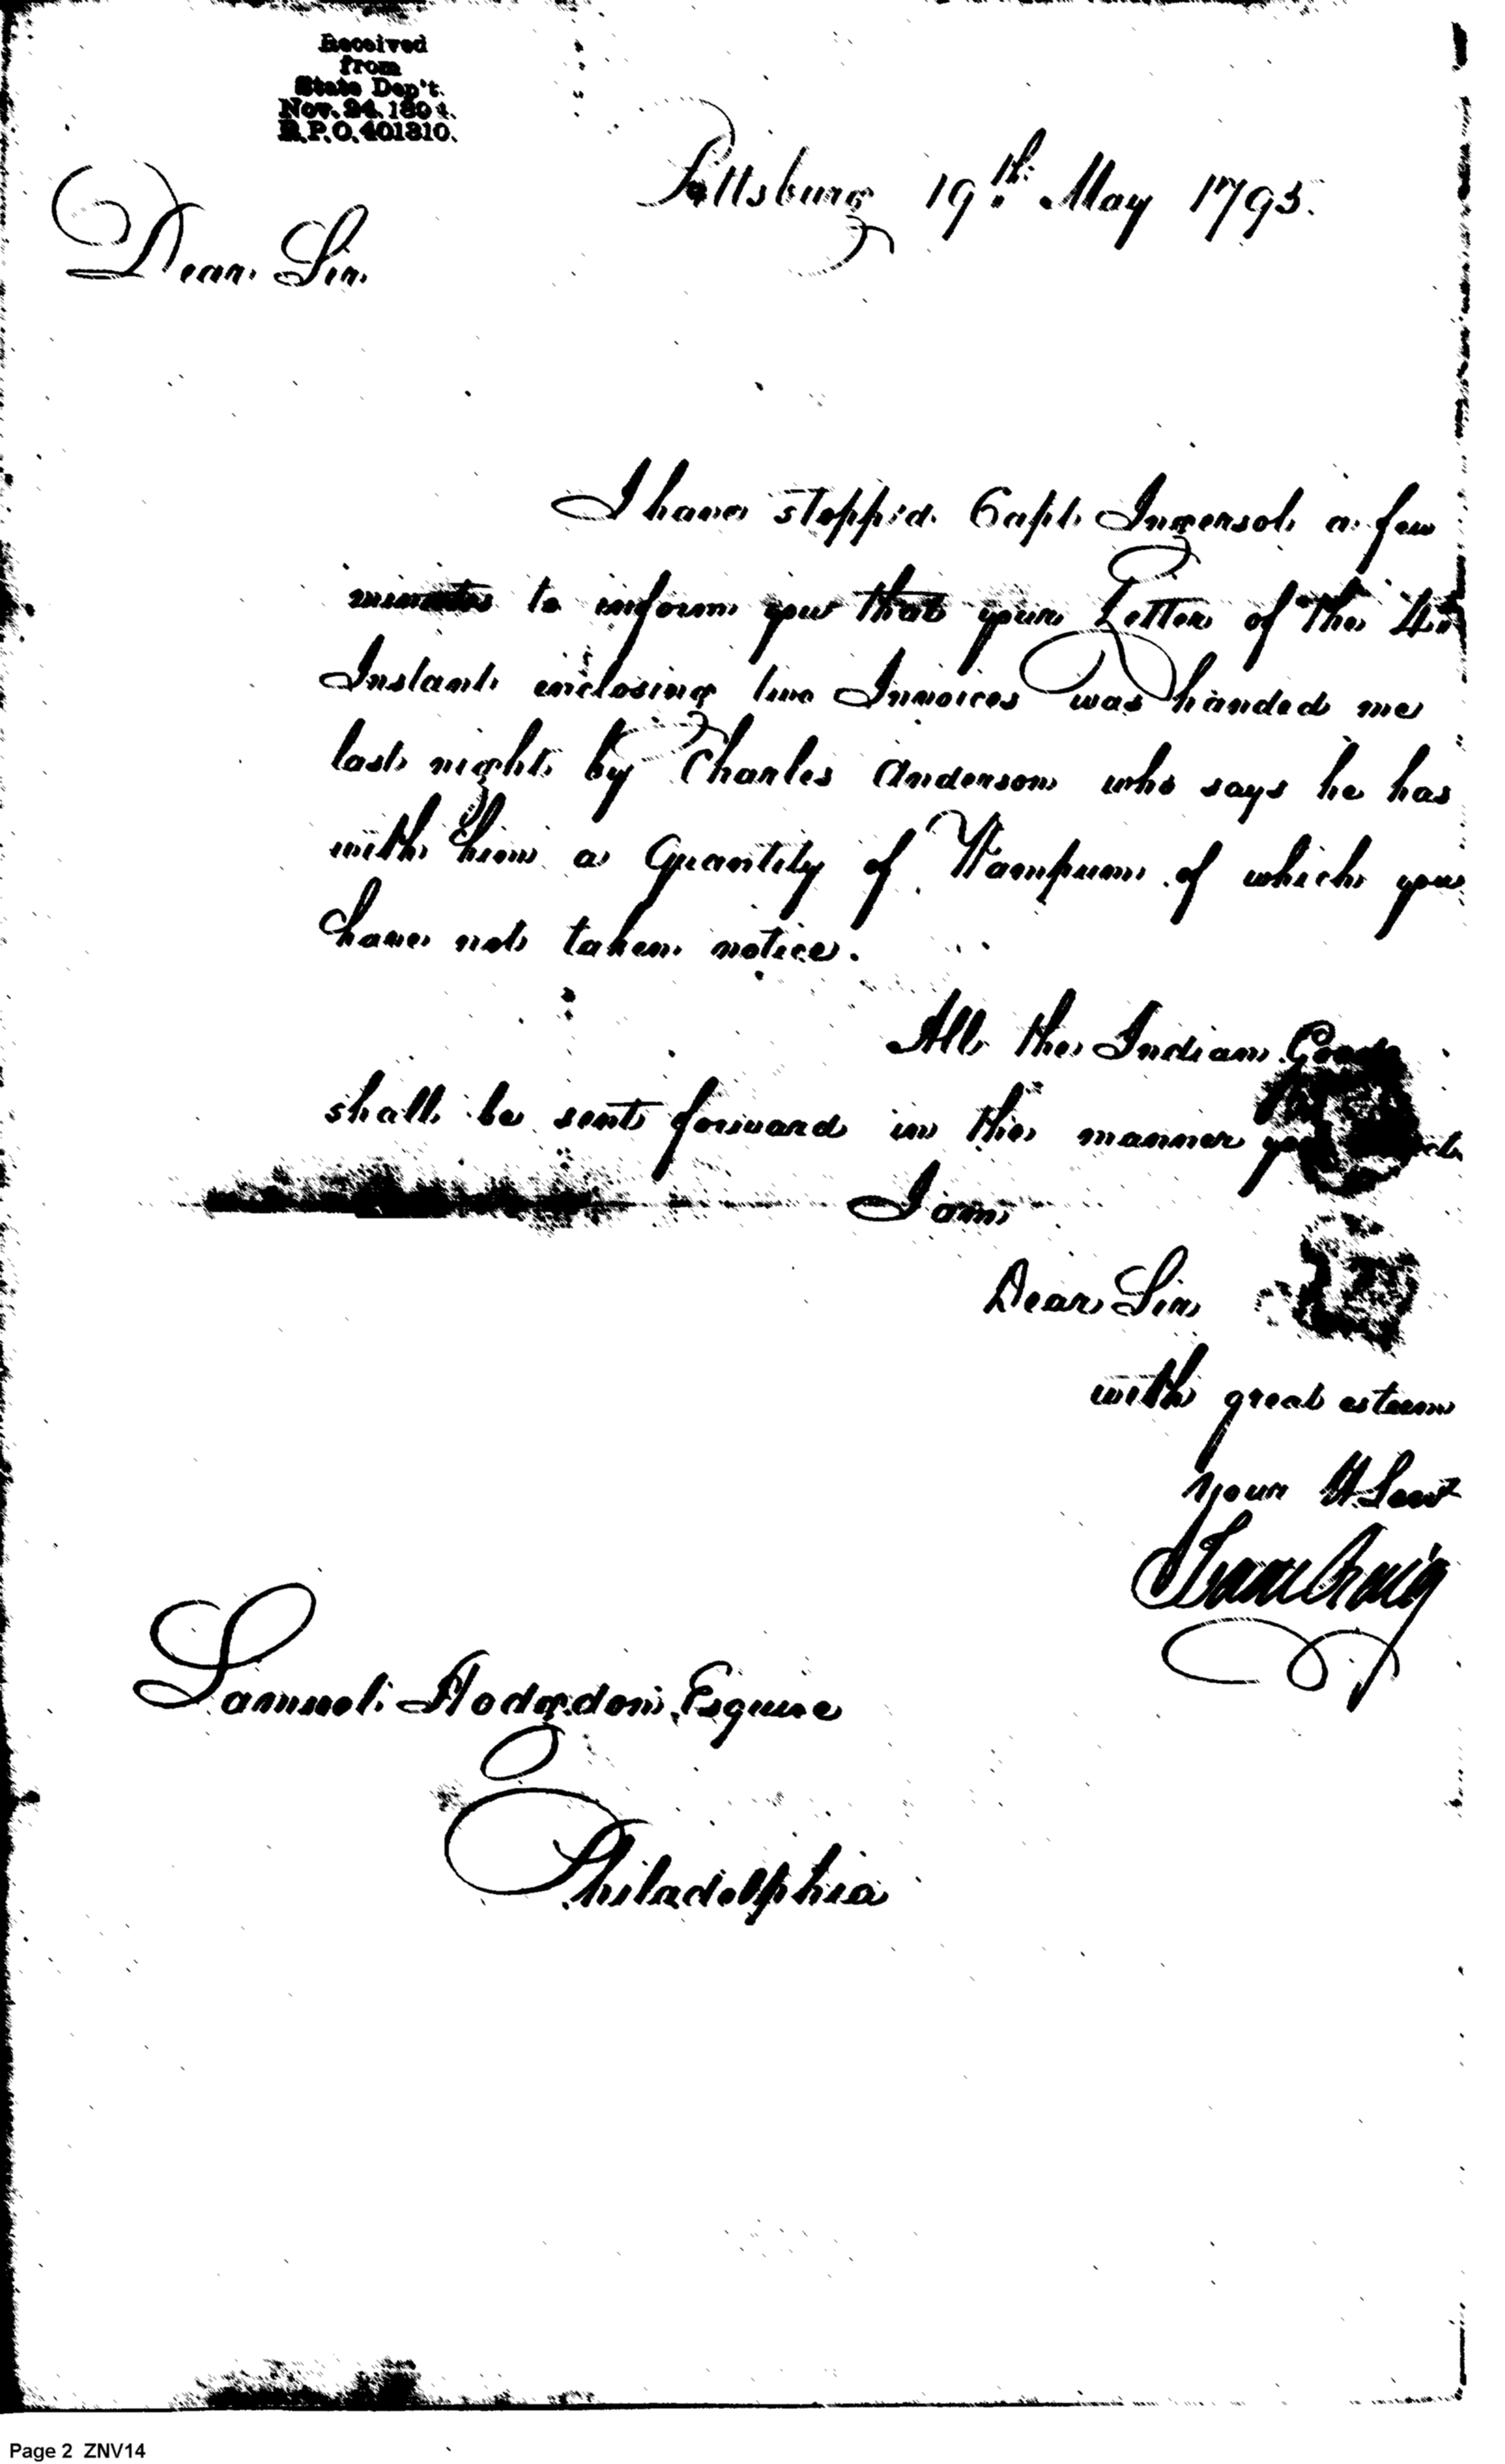 Received
from
State Dep't.
Nov. 24. 1894.
R.P.O. 401310.
Pittsburg 19th. May 1795.
Dear Sir
I have stopp'd Capt. Ingersol a few
minutes to inform you that your Letter of the 4th
Instant enclosing two Invoices was handed me
last night by Charles Anderson who says he has
with him a Quantity of Wampum of which you
have not taken notice.
All the Indian Goods
shall be sent forward in the manner you
I am
Dear Sir
with great esteem
your H. Servt
Isaac Craig
Samuel Hodgdon Esquire
Philadelphia
Page 2 ZNV14